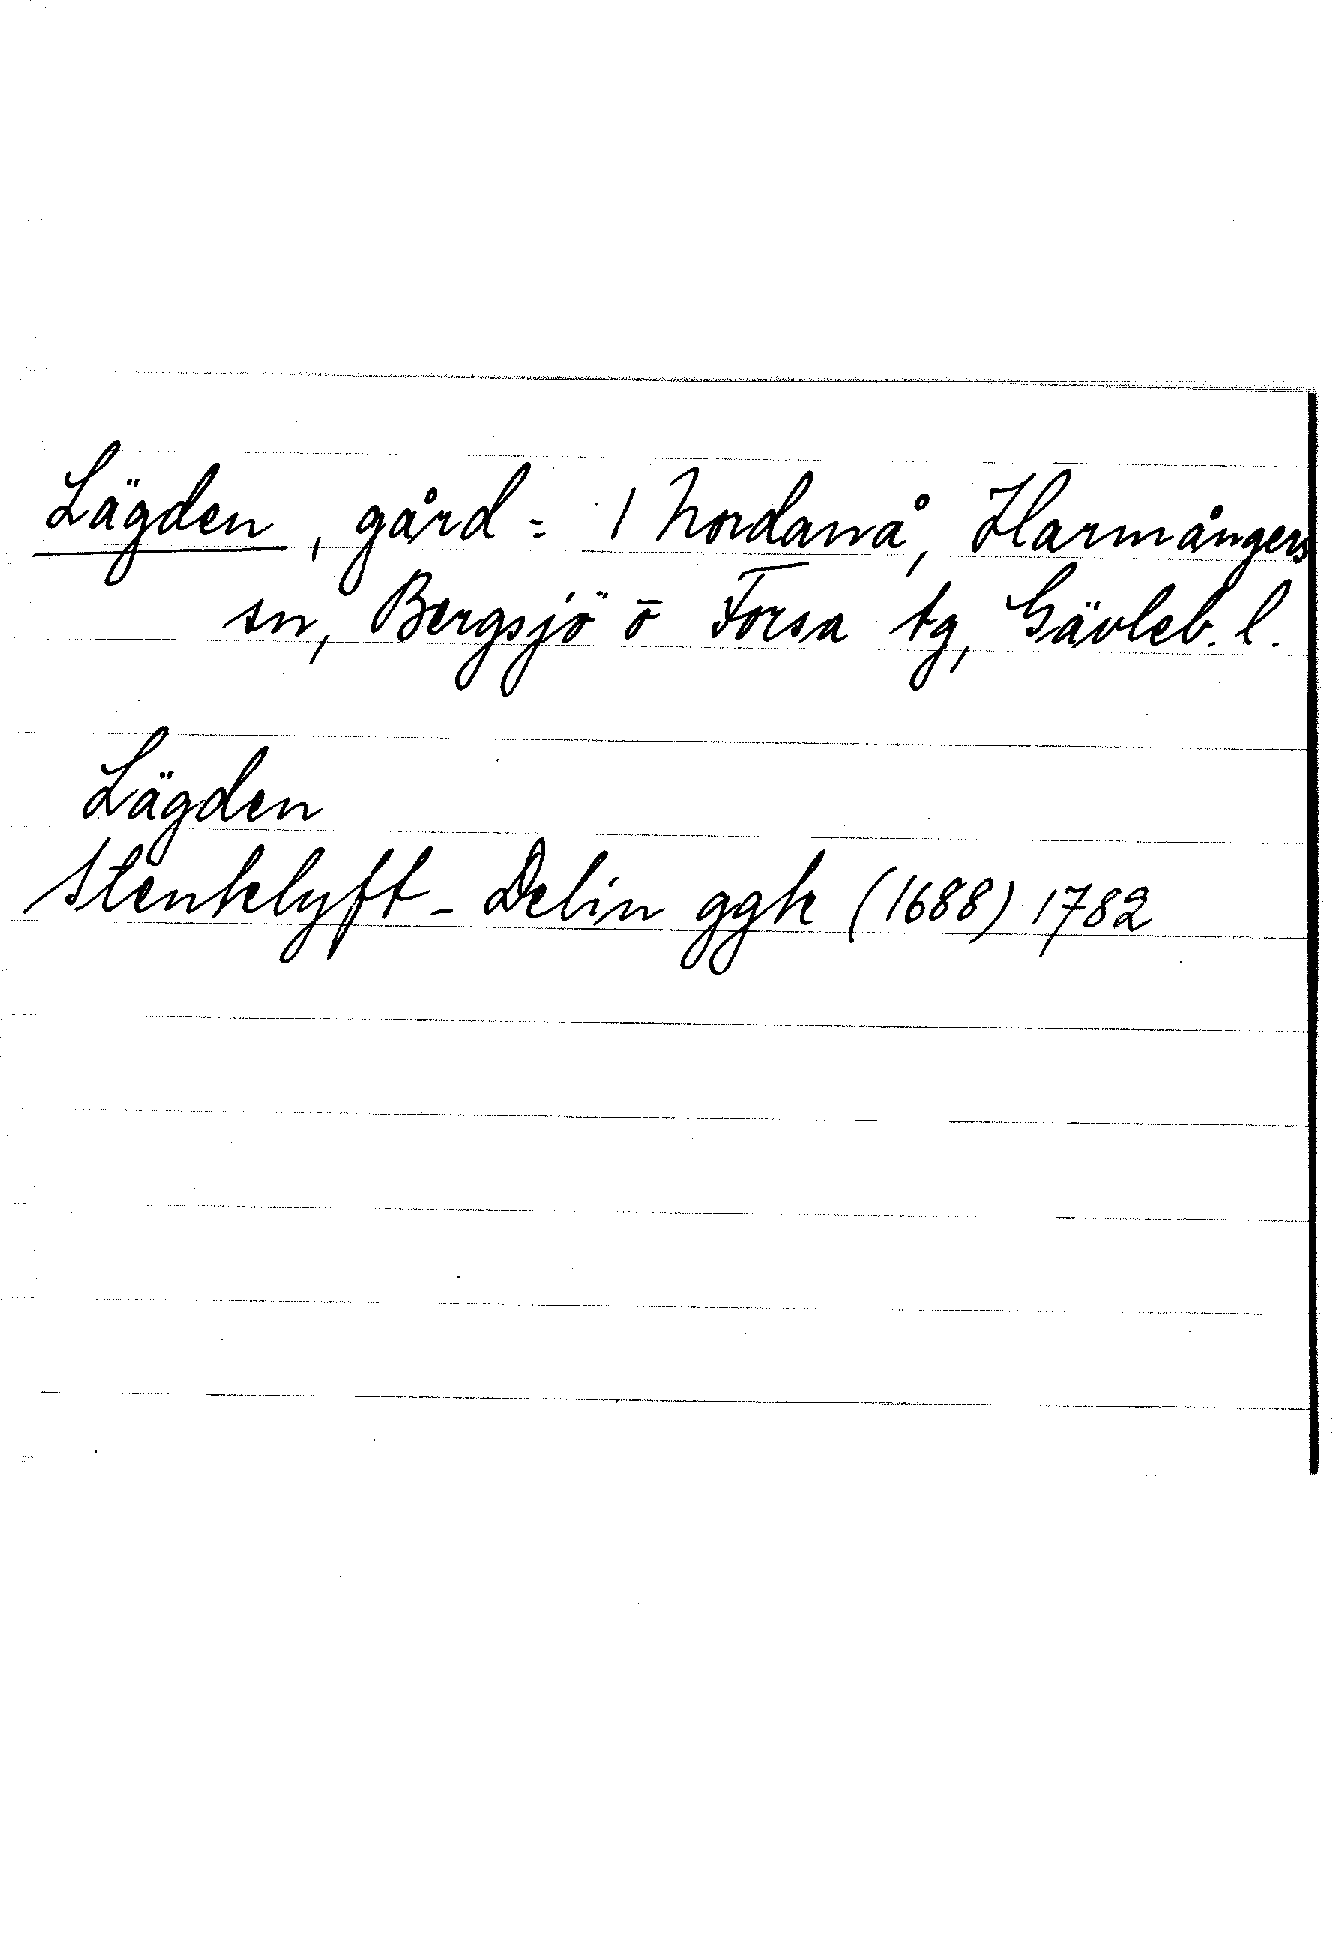 Lägden, gård = 1 Nordanå, Harmångers
sn, Bergsjö o Forsa tg, Gävleb. l.
Lägden
Stenklyft - Delin ggk (1688) 1782